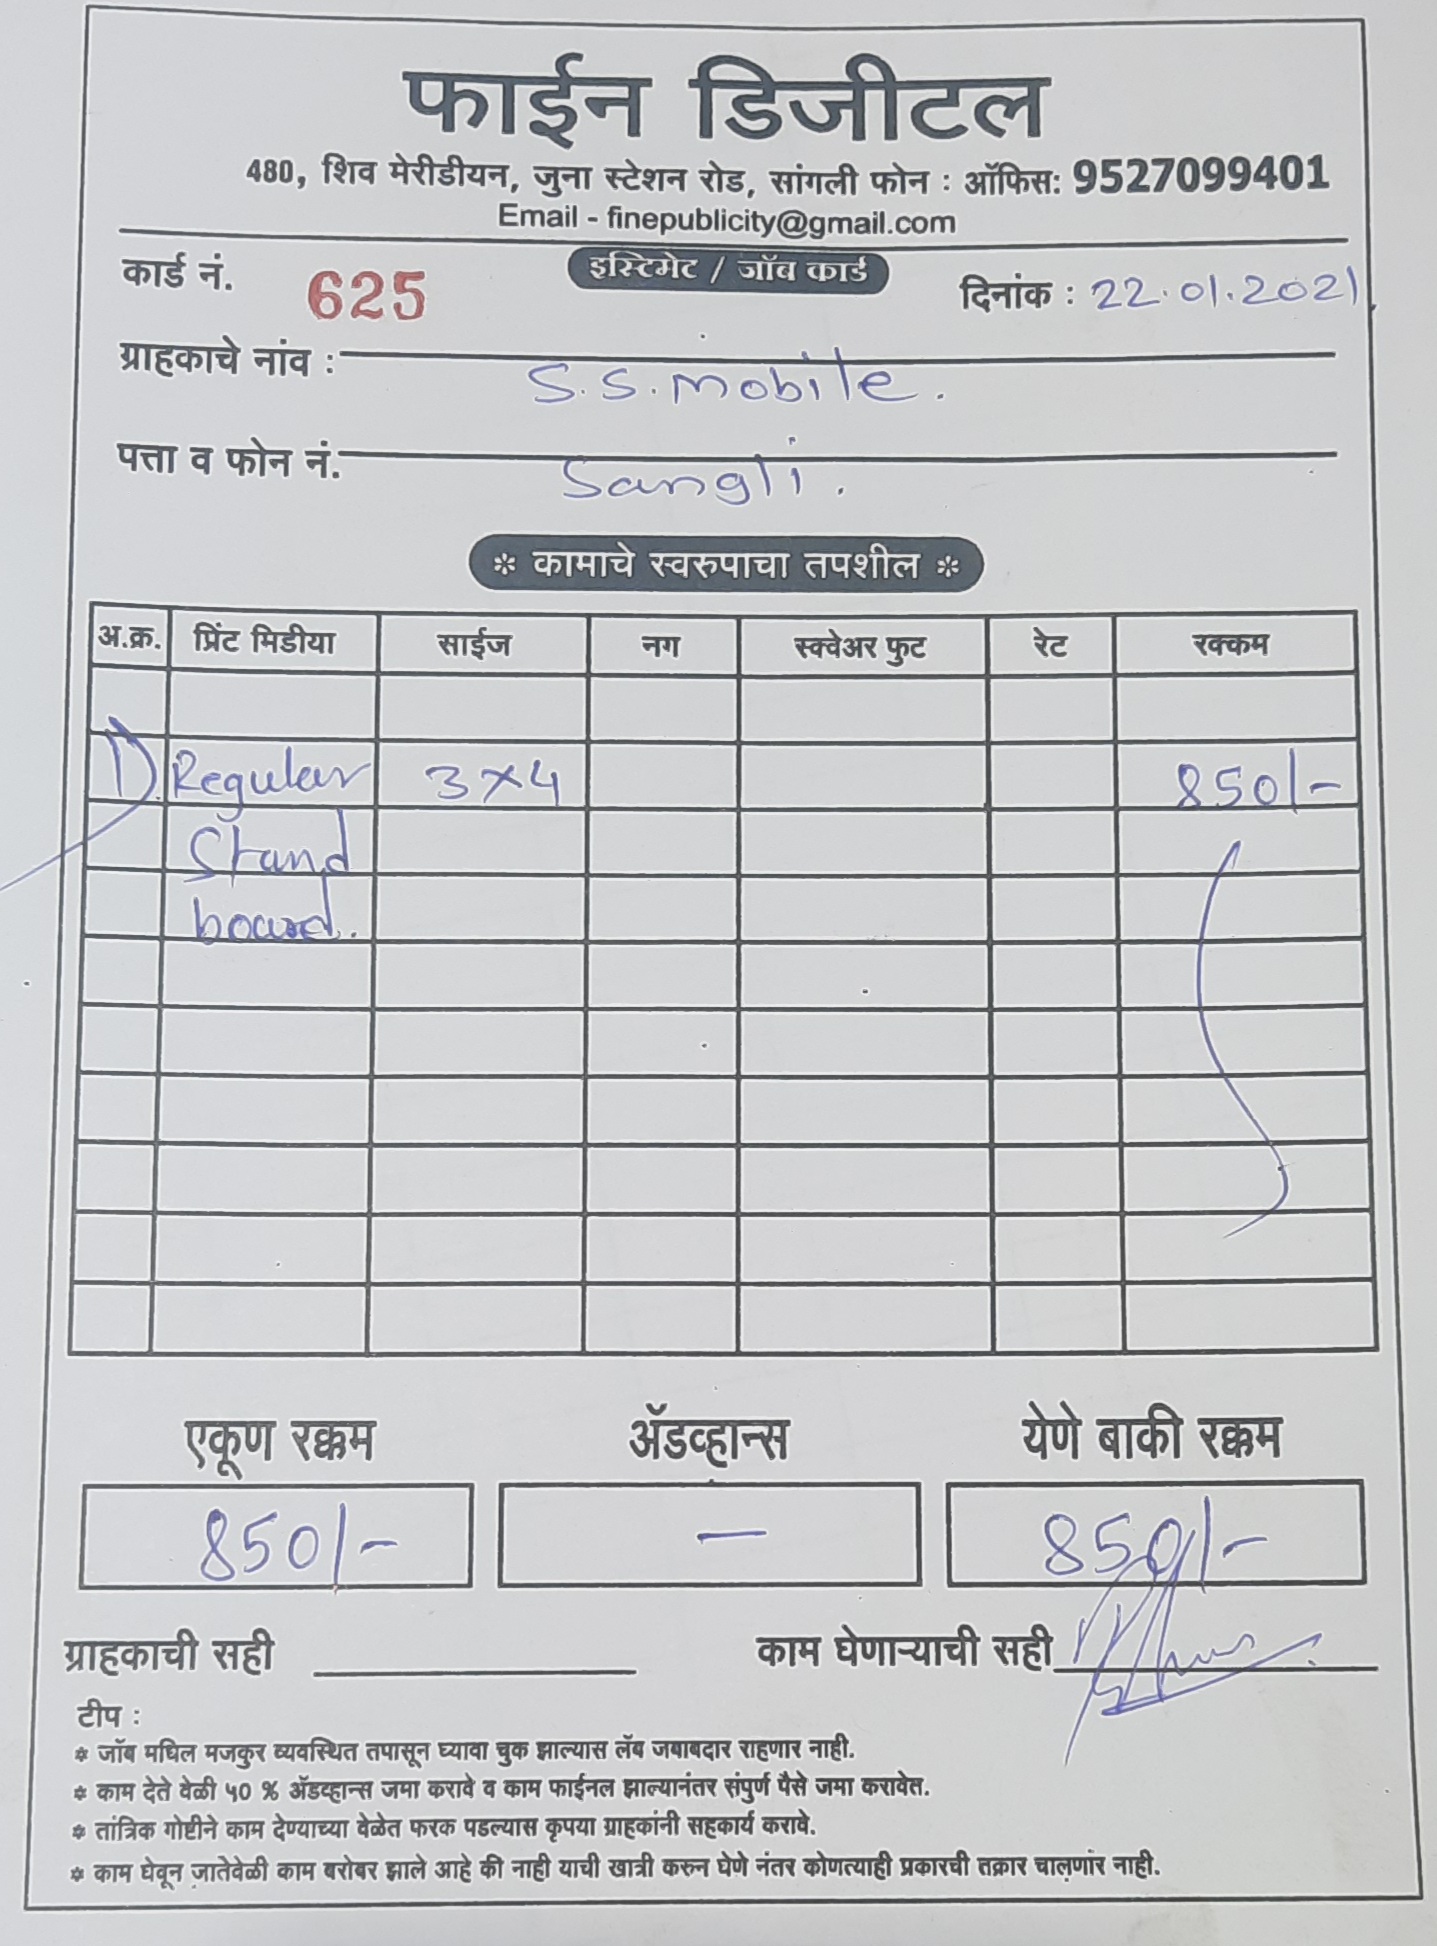 फाईन डिजीटल
480, शिव मेरीडीयन, जुना स्टेशन रोड, सांगली फोन : ऑफिस: 9527099401
Email - finepublicity@gmail.com
कार्ड नं. 625 इस्टिमेट / जॉब कार्ड दिनांक : 22.01.2021
ग्राहकाचे नांव : S.S. mobile.
पत्ता व फोन नं. Sangli.
* कामाचे स्वरुपाचा तपशील *
अ.क्र. प्रिंट मिडीया साईज नग स्क्वेअर फुट रेट रक्कम
1) Regular 3x4 850/-
Stand
board.
एकूण रक्कम ॲडव्हान्स येणे बाकी रक्कम
850/- — 850/-
ग्राहकाची सही काम घेणाऱ्याची सही
टीप :
* जॉब मधिल मजकुर व्यवस्थित तपासून घ्यावा चुक झाल्यास लॅब जबाबदार राहणार नाही.
* काम देते वेळी ५० % ॲडव्हान्स जमा करावे व काम फाईनल झाल्यानंतर संपुर्ण पैसे जमा करावेत.
* तांत्रिक गोष्टीने काम देण्याच्या वेळेत फरक पडल्यास कृपया ग्राहकांनी सहकार्य करावे.
* काम घेवून जातेवेळी काम बरोबर झाले आहे की नाही याची खात्री करुन घेणे नंतर कोणत्याही प्रकारची तक्रार चालणार नाही.